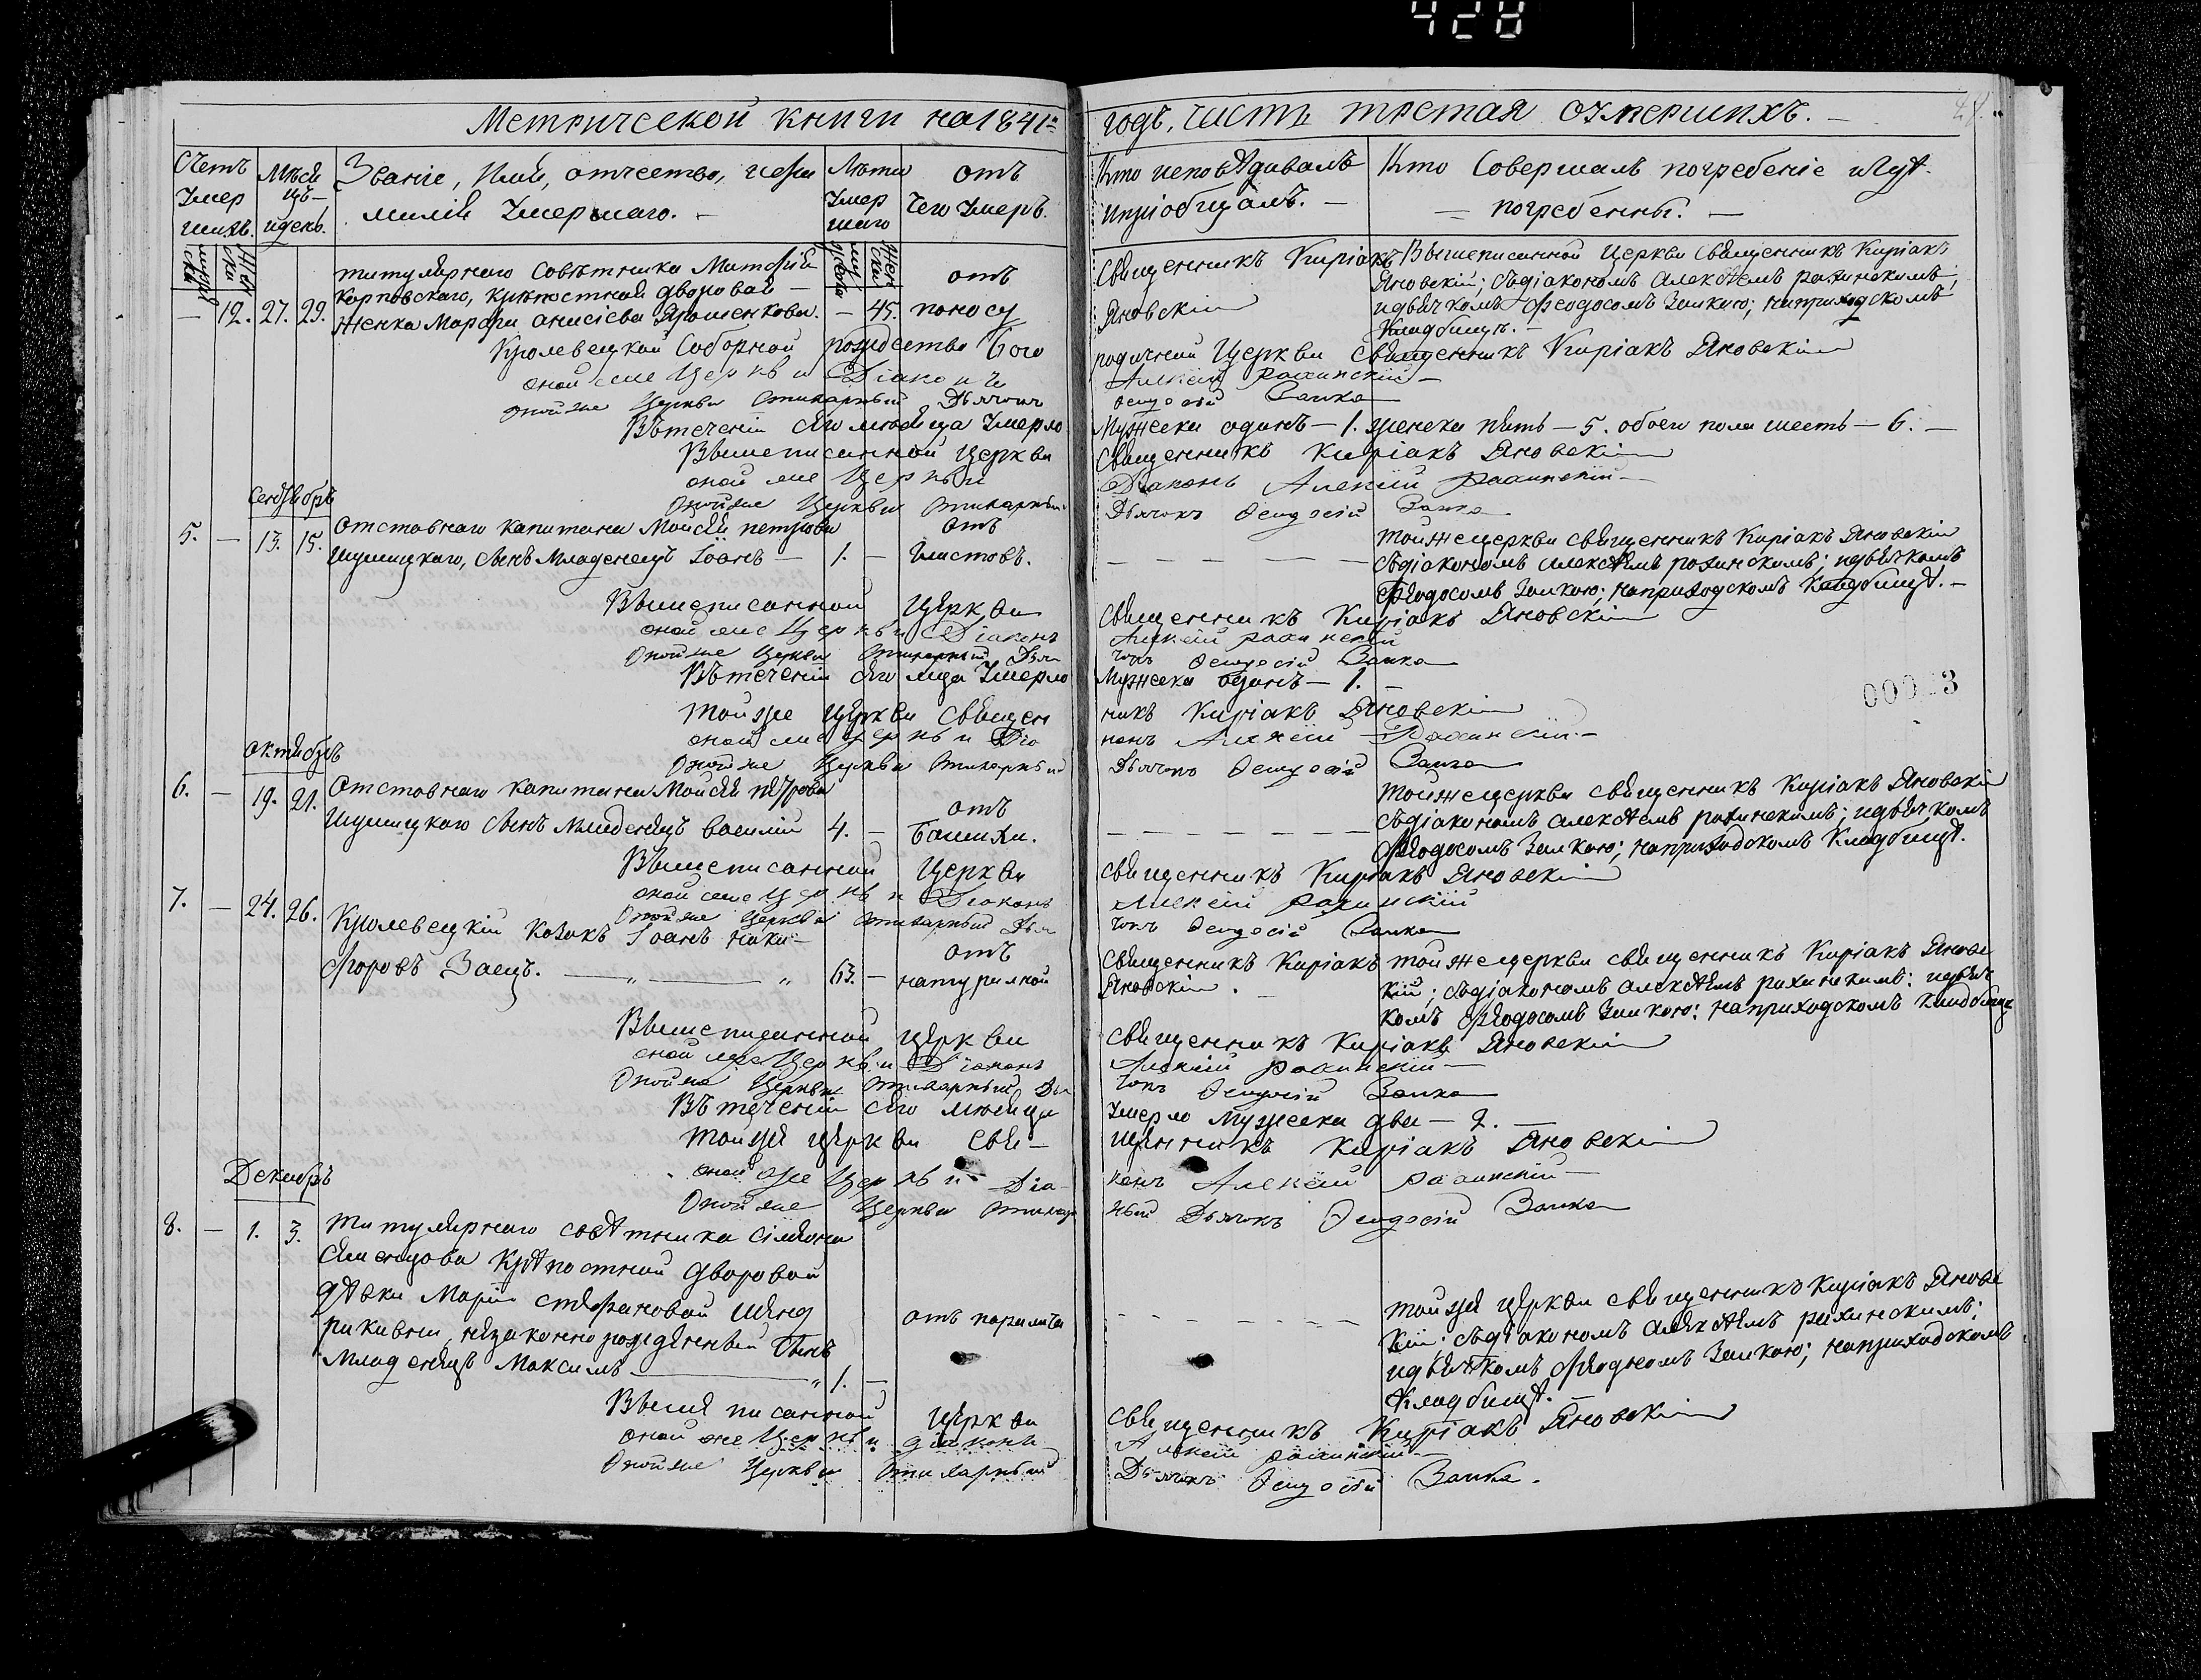 428
Метрической книги на 1841й
годъ, часть третая озмершихъ. —
Счетъ Умер шихъ.
мужескъ
женска
Мѣсяцъ и день.
Званіе, Имя, отчество, и фамилія Умершаго. —
Лѣта Умершаго
мужеска
женска
отъ Чего Умеръ.
Кто исповѣдивалъ и пріобщалъ. —
Кто Совершалъ погребеніе и гдѣ погребенны. —
— 12. 27. 29.
титулярнаго Совѣтника Матфія
Карповскаго, крѣпостной дворовой —
женка Марфа анисіева Ярошенкова. — 45.
отъ
поносу
Священникъ Киріакъ
Яновскій
Вышеписанной Церкви Священникъ Киріакъ
Яновскій; съдіакономъ алексѣемъ рахинскимъ;
идьячкомъ Феодосомъ Заикою; наприходскомъ
Кладбищѣ. —
Кролевецкой Соборной рождества Бого
родичной Церкви священникъ Киріакъ Яновскій
оной же Церкви Діаконъ
Алексій Рахинскій —
Оной же Церкви Стихарный Дьячокъ
Феодосій Заика
Втеченіи сего месяца Умерло
Мужеска одинъ — 1. женска пять — 5. обоего пола шесть — 6. —
Вышеписанной Церкви
Священникъ Киріакъ Яновскій
оной же Церкви
Діаконъ Алексій Рахинскій —
Оной же Церкви Стихарный
Дьячокъ Феодосій Заика
Сентябрь
5. — 13. 15.
Отставнаго капитана Моисея петрова
Шушицкаго, сынъ Младенецъ Іоанъ — 1. —
отъ
Глистовъ.
— — — — —
тойжецеркви священникъ Киріакъ Яновскій
съдіакономъ алексѣемъ рахинскимъ; идьячкомъ
Феодосомъ Заикою; наприходскомъ Кладбищѣ. —
Вышеписанной Церкви
Священникъ Киріакъ Яновскій
оной же Церкви Діаконъ
Алексій Рахинскій
Оной же Церкви Стихарный Дья
чокъ Феодосій Заика
Втеченіи сего мца Умерло
Мужеска одинъ — 1. —
тойже Церкви Священ
никъ Киріакъ Яновскій
оной же Церкви Діа
конъ Алексій Рахинскій —
Оной же Церкви Стихарный
Дьячокъ Феодосій Заика
00023
октябрь
6. — 19. 21.
Отставнаго капитана Моисея петрова
Шушицкаго сынъ младенецъ василій 4. —
отъ
Башихи.
— — — — — — —
тойжецеркви священникъ Киріакъ Яновскій
съдіакономъ алексѣемъ рахинскимъ; идьячкомъ
Феодосомъ Заикою; наприходскомъ Кладбищѣ.
Вышеписанной Церкви
священникъ Киріакъ Яновскій
оной же Церкви Діаконъ
Алексій Рахинскій
Оной же Церкви Стихарный Дья
чокъ Феодосій Заика
7. — 24. 26.
Кролевецкій Козакъ Іоанъ Ники-
форовъ Заецъ. — „ — „ 63. —
отъ
натуралной
Священникъ Киріакъ
Яновскій. —
тойжецеркви священникъ Киріакъ Яновс
кій; съдіакономъ алексѣемъ рахинскимъ: идьяч
комъ Феодосомъ Заикою: наприходскомъ кладбищѣ
Вышеписанной церкви
священникъ Киріакъ Яновскій
оной же Церкви Діаконъ
Алексій Рахинскій —
Оной же Церкви Стихарный Дья
чокъ Феодосій Заика
Втеченіи сего месяца
Умерло мужеска два — 2. —
тойже церкви Свя —
щенникъ Киріакъ Яновскій
оной же Церкви Діа-
конъ Алексій Рахинскій —
Оной же Церкви Стихар
ный Дьячокъ Феодосій Заика
Декабрь
8. — 1. 3.
титулярнаго совѣтника Сімеона
Огиевцова Крѣпостной дворовой
дѣвки Маріи стефановой Шенд
риковни, незаконно рожденный Сынъ
младенецъ Максимъ — „ 1. —
отъ паралича
— — — — — —
тойже церкви священникъ Киріакъ Яновс
кій; съдіакономъ алексѣемъ рахинскимъ;
идьячкомъ Феодосомъ Заикою; наприходскомъ
Кладбищѣ. —
Вышеписанной церкви
священникъ Киріакъ Яновскій
оной же Церкви діаконъ
Алексій Рахинскій —
Оной же Церкви Стихарный
Дьячокъ Феодосій Заика.